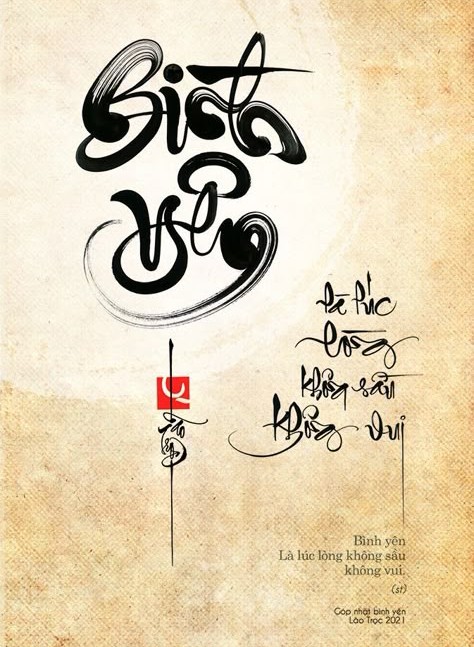 Bình
yên
là lúc
lòng
không sầu
không vui
Bình yên
Là lúc lòng không sầu
không vui.
(st)
Góp nhặt bình yên
Lão Trọc 2021